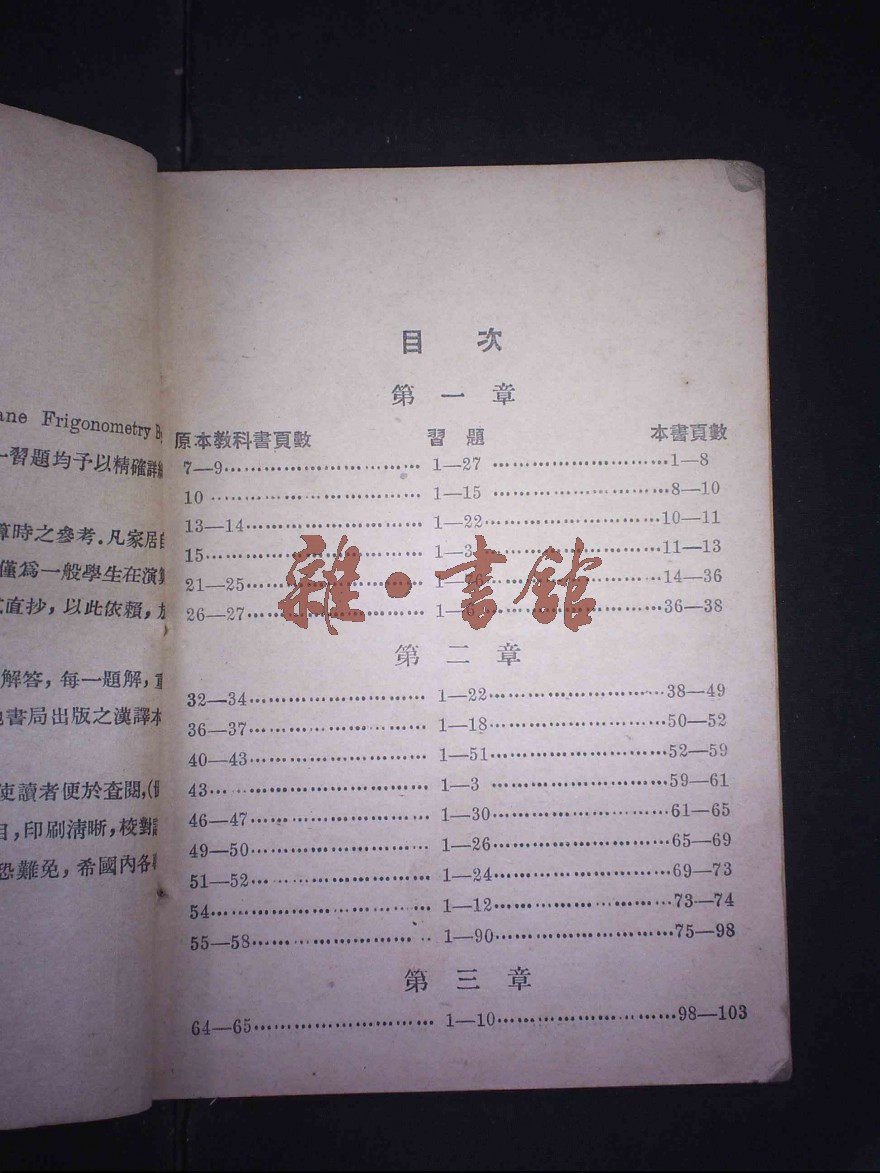 ane Frigonometry B
一習題均予以精確詳
算時之參考．凡家居
僅爲一般學生在演
直抄，以此依賴，
解答，每一題解，
書局出版之漢譯本
使讀者便於查閱，
目，印刷清晰，校對
恐難免，希國內各
目 次
第 一 章
原本教科書頁數 習 題 本書頁數
7—9 1—27 1—8
10 1—15 8—10
13—14 1—22 10—11
15 1—3 11—13
21—25 1—76 14—36
26—27 1—6 36—38
第 二 章
32—34 1—22 38—49
36—37 1—18 50—52
40—43 1—51 52—59
43 1—3 59—61
46—47 1—30 61—65
49—50 1—26 65—69
51—52 1—24 69—73
54 1—12 73—74
55—58 1—90 75—98
第 三 章
64—65 1—10 98—103
雜·書館